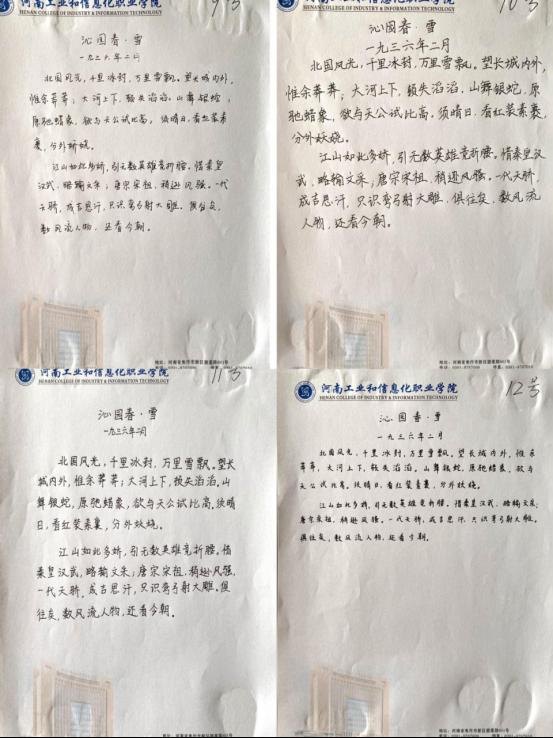 河南工业和信息化职业学院
HENAN COLLEGE OF INDUSTRY & INFORMATION TECHNOLOGY
9号
沁园春·雪
一九三六年二月
北国风光,千里冰封,万里雪飘。望长城内外,
惟余莽莽;大河上下,顿失滔滔。山舞银蛇,
原驰蜡象,欲与天公试比高。须晴日,看红装素
裹,分外妖娆。
江山如此多娇,引无数英雄竞折腰。惜秦皇
汉武,略输文采;唐宗宋祖,稍逊风骚。一代
天骄,成吉思汗,只识弯弓射大雕。俱往矣,
数风流人物,还看今朝。
地址:河南省焦作市
河南工业和信息化职业学院
HENAN COLLEGE OF INDUSTRY & INFORMATION TECHNOLOGY
10号
沁园春·雪
一九三六年二月
北国风光,千里冰封,万里雪飘。望长城内外,
惟余莽莽;大河上下,顿失滔滔。山舞银蛇,原
驰蜡象,欲与天公试比高。须晴日,看红装素裹,
分外妖娆。
江山如此多娇,引无数英雄竞折腰。惜秦皇汉
武,略输文采;唐宗宋祖,稍逊风骚。一代天骄,
成吉思汗,只识弯弓射大雕。俱往矣,数风流
人物,还看今朝。
地址:河南省焦作市
河南工业和信息化职业学院
HENAN COLLEGE OF INDUSTRY & INFORMATION TECHNOLOGY
11号
沁园春·雪
一九三六年二月
北国风光,千里冰封,万里雪飘。望长
城内外,惟余莽莽;大河上下,顿失滔滔。山
舞银蛇,原驰蜡象,欲与天公试比高。须晴
日,看红装素裹,分外妖娆。
江山如此多娇,引无数英雄竞折腰。惜
秦皇汉武,略输文采;唐宗宋祖,稍逊风骚。
一代天骄,成吉思汗,只识弯弓射大雕。俱
往矣,数风流人物,还看今朝。
河南工业和信息化职业学院
HENAN COLLEGE OF INDUSTRY & INFORMATION TECHNOLOGY
12号
沁园春·雪
一九三六年二月
北国风光,千里冰封,万里雪飘。望长城内外,惟余
莽莽,大河上下,顿失滔滔。山舞银蛇,原驰蜡象,欲与
天公试比高。须晴日,看红装素裹,分外妖娆。
江山如此多娇,引无数英雄竞折腰。惜秦皇汉武,略输文采;
唐宗宋祖,稍逊风骚。一代天骄,成吉思汗,只识弯弓射大雕。
俱往矣,数风流人物,还看今朝。